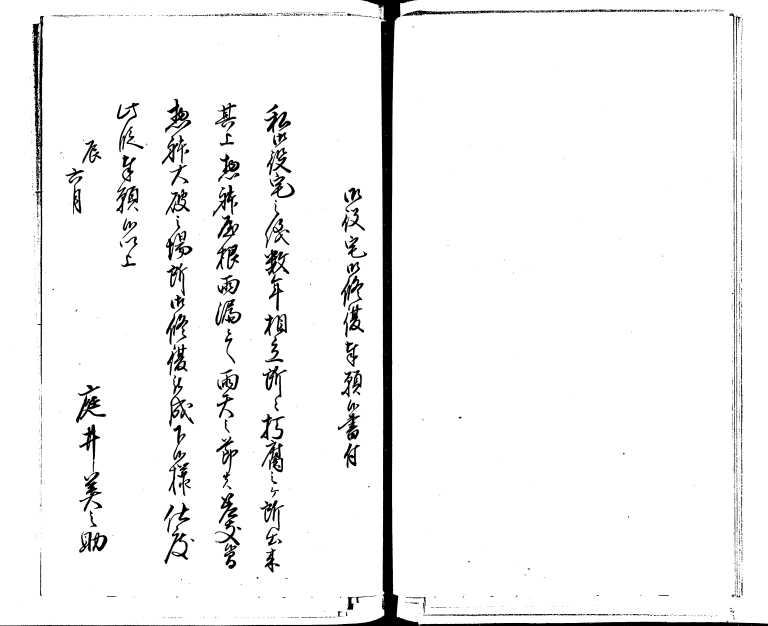 御役宅御修復奉願候書付
私御役宅之儀数年相立所々朽腐之ヶ所出来
其上惣躰屋根雨漏之雨天之節者差支皆
惣躰大破之場所御修復被成下候様仕度
此段奉願候以上
辰
六月
庭井美之助